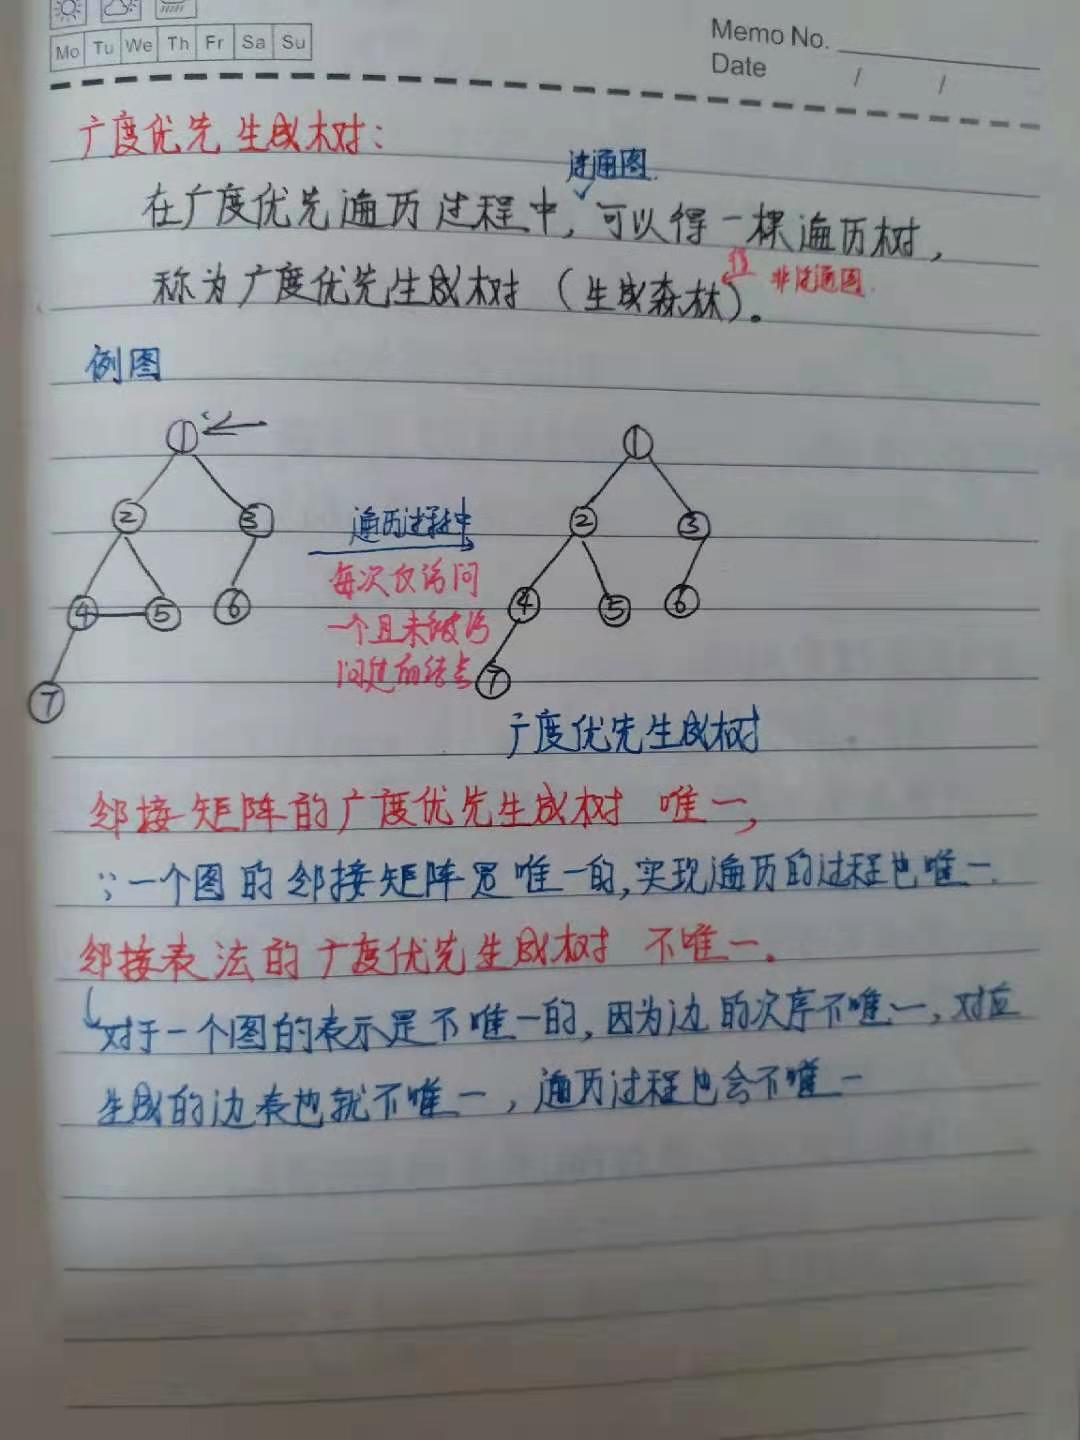 Mo Tu We Th Fr Sa Su
Memo No.
Date / /
广度优先生成树:
连通图.
在广度优先遍历过程中,可以得一棵遍历树,
得 非连通图.
称为广度优先生成树(生成森林)。
例图
1
1
2
3
遍历过程中
2
3
每次仅访问
4
5
6
一个且未被访
4
5
6
问过的结点
7
7
广度优先生成树
邻接矩阵的广度优先生成树 唯一,
∵一个图的邻接矩阵是唯一的,实现遍历的过程也唯一.
邻接表法的广度优先生成树 不唯一.
对于一个图的表示是不唯一的,因为边的次序不唯一,对应
生成的边表也就不唯一,遍历过程也会不唯一